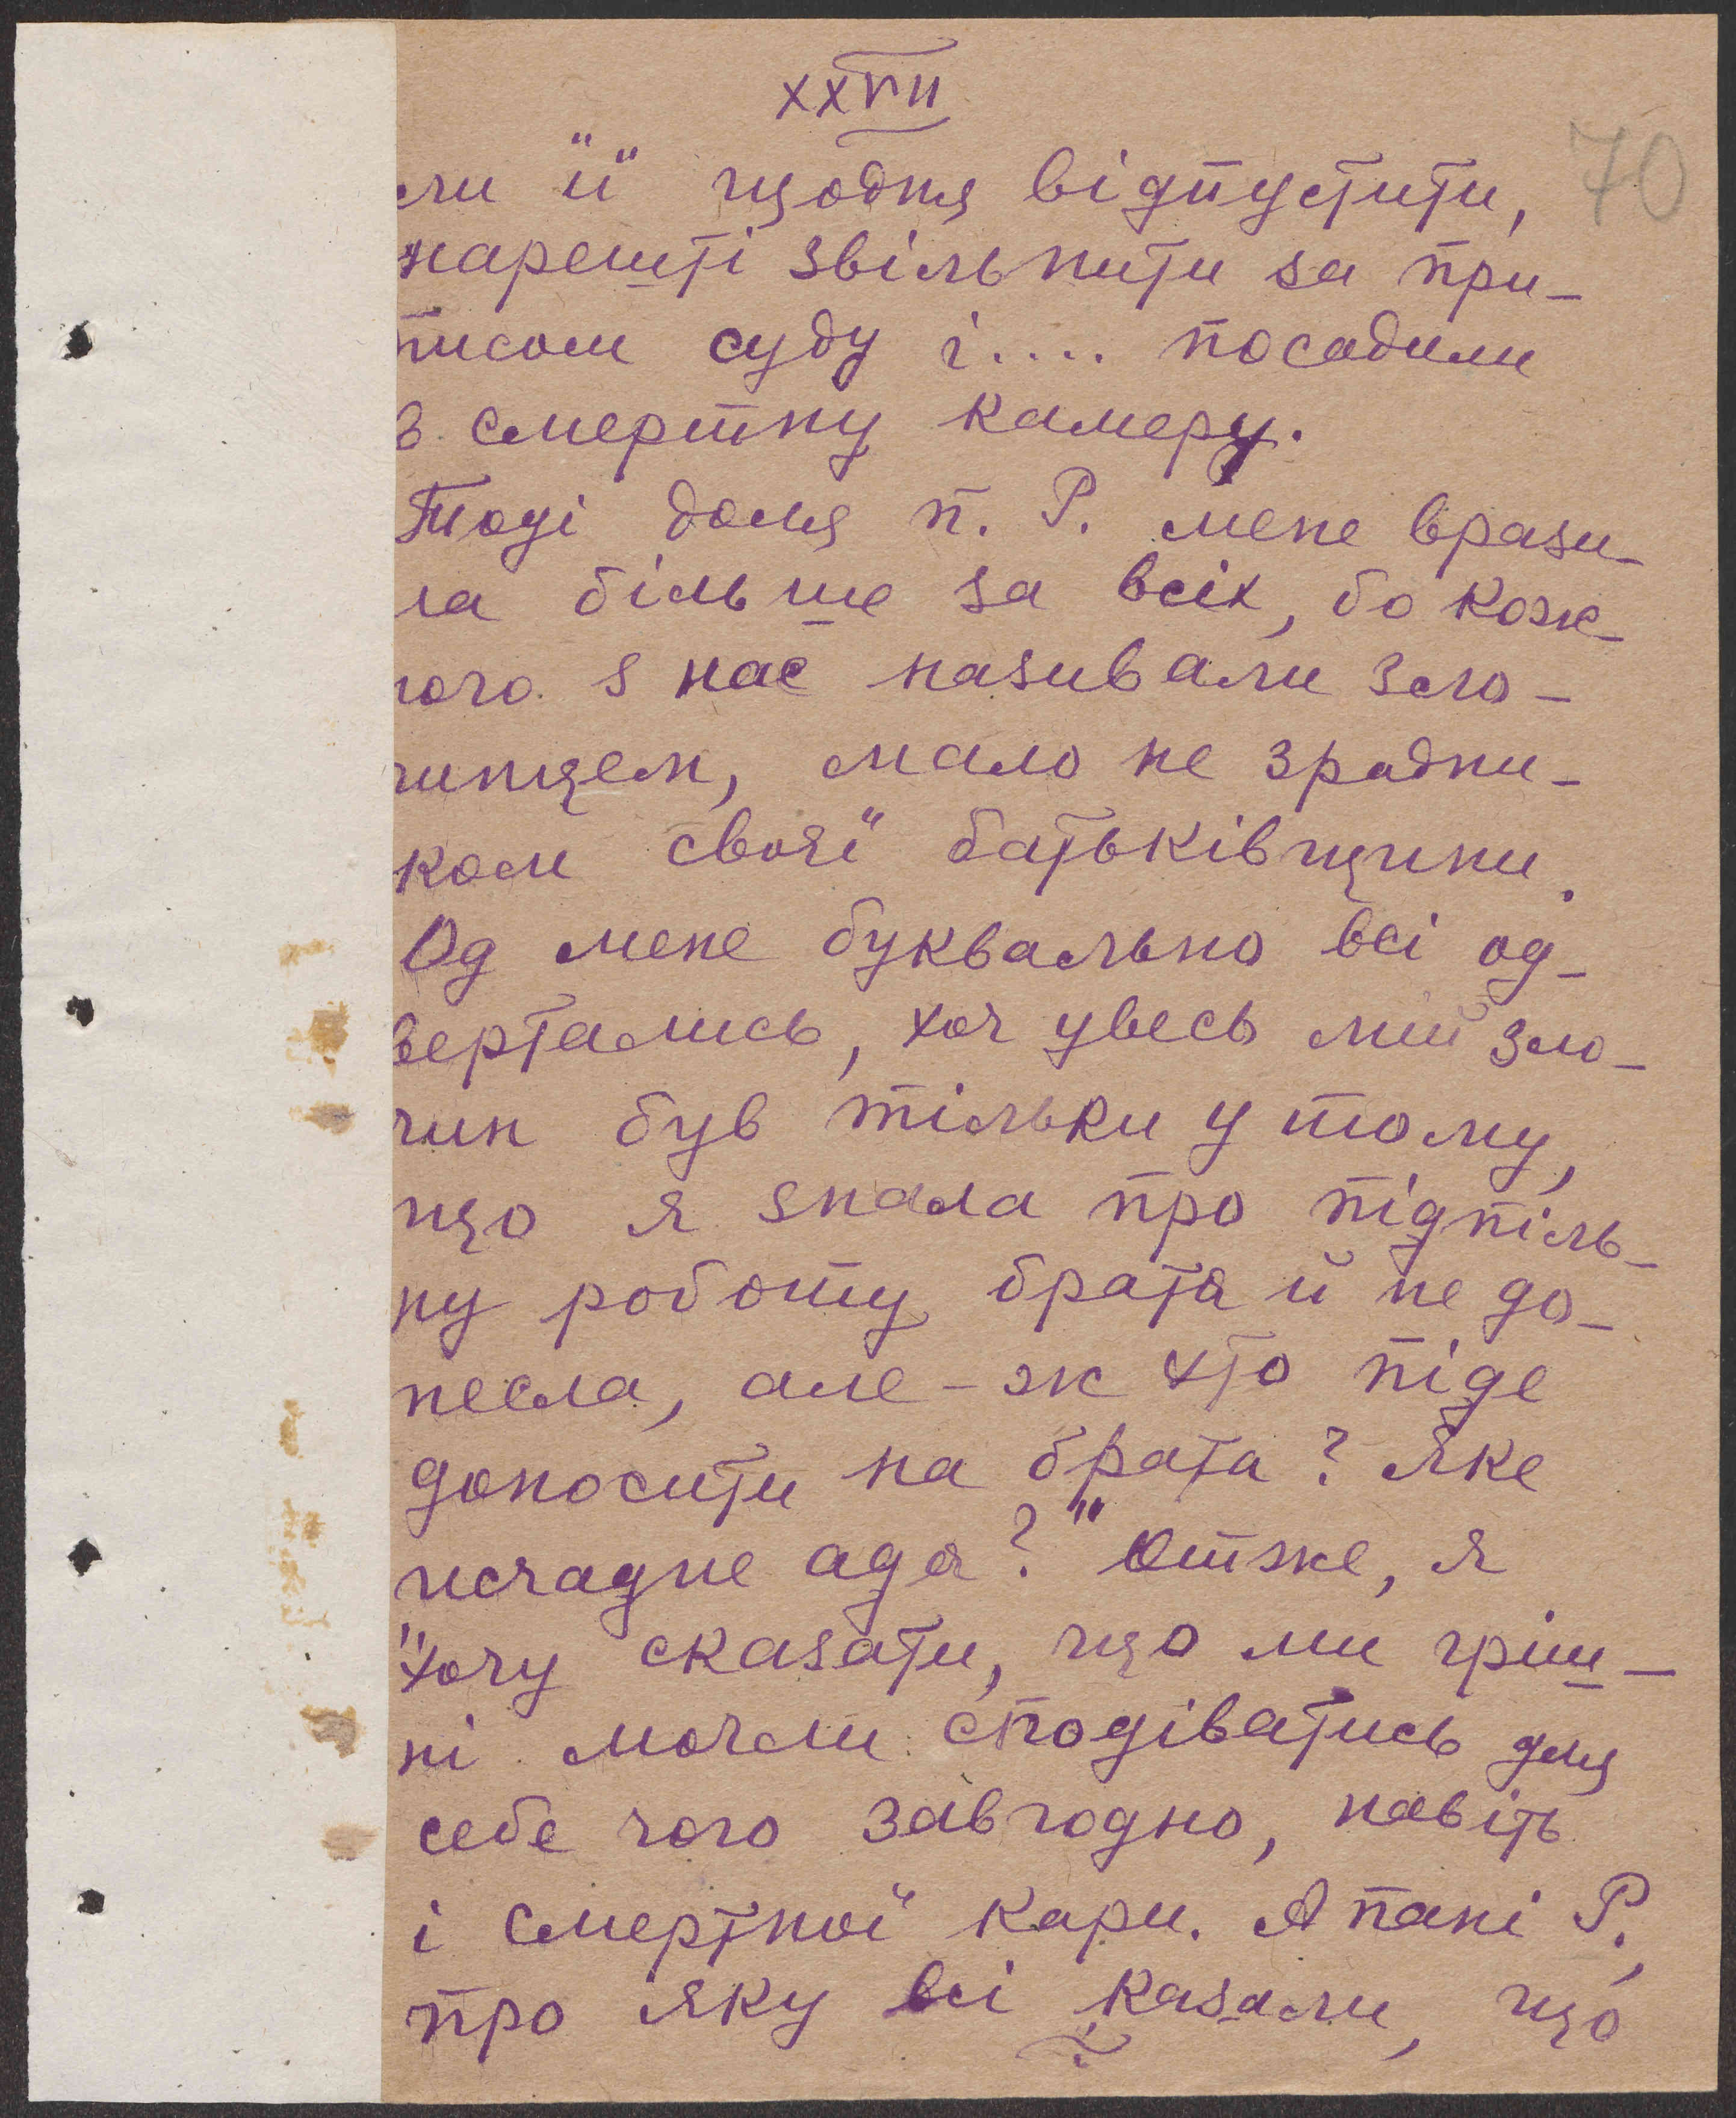 XXVII
70
ли її щодня відпустити,
нарешті звільнити за при-
писом суду і.... посадили
в смертну камеру.
Тоді доля п. Р. мене врази-
ла більше за всіх, бо кож-
ного з нас називали зло-
чинцем, мало не зрадни-
ком своєї батьківщини.
Од мене буквально всі од-
вертались, хоч увесь мій зло-
чин був тільки у тому,
що я знала про підпіль-
ну роботу брата й не до-
несла, але-ж хто піде
доносити на брата? Яке
исчадие ада?" Отже, я
"хочу сказати, що ми гріш-
ні могли сподіватись для
себе чого завгодно, навіть
і смертної кари. А пані Р.,
про яку всі казали, що